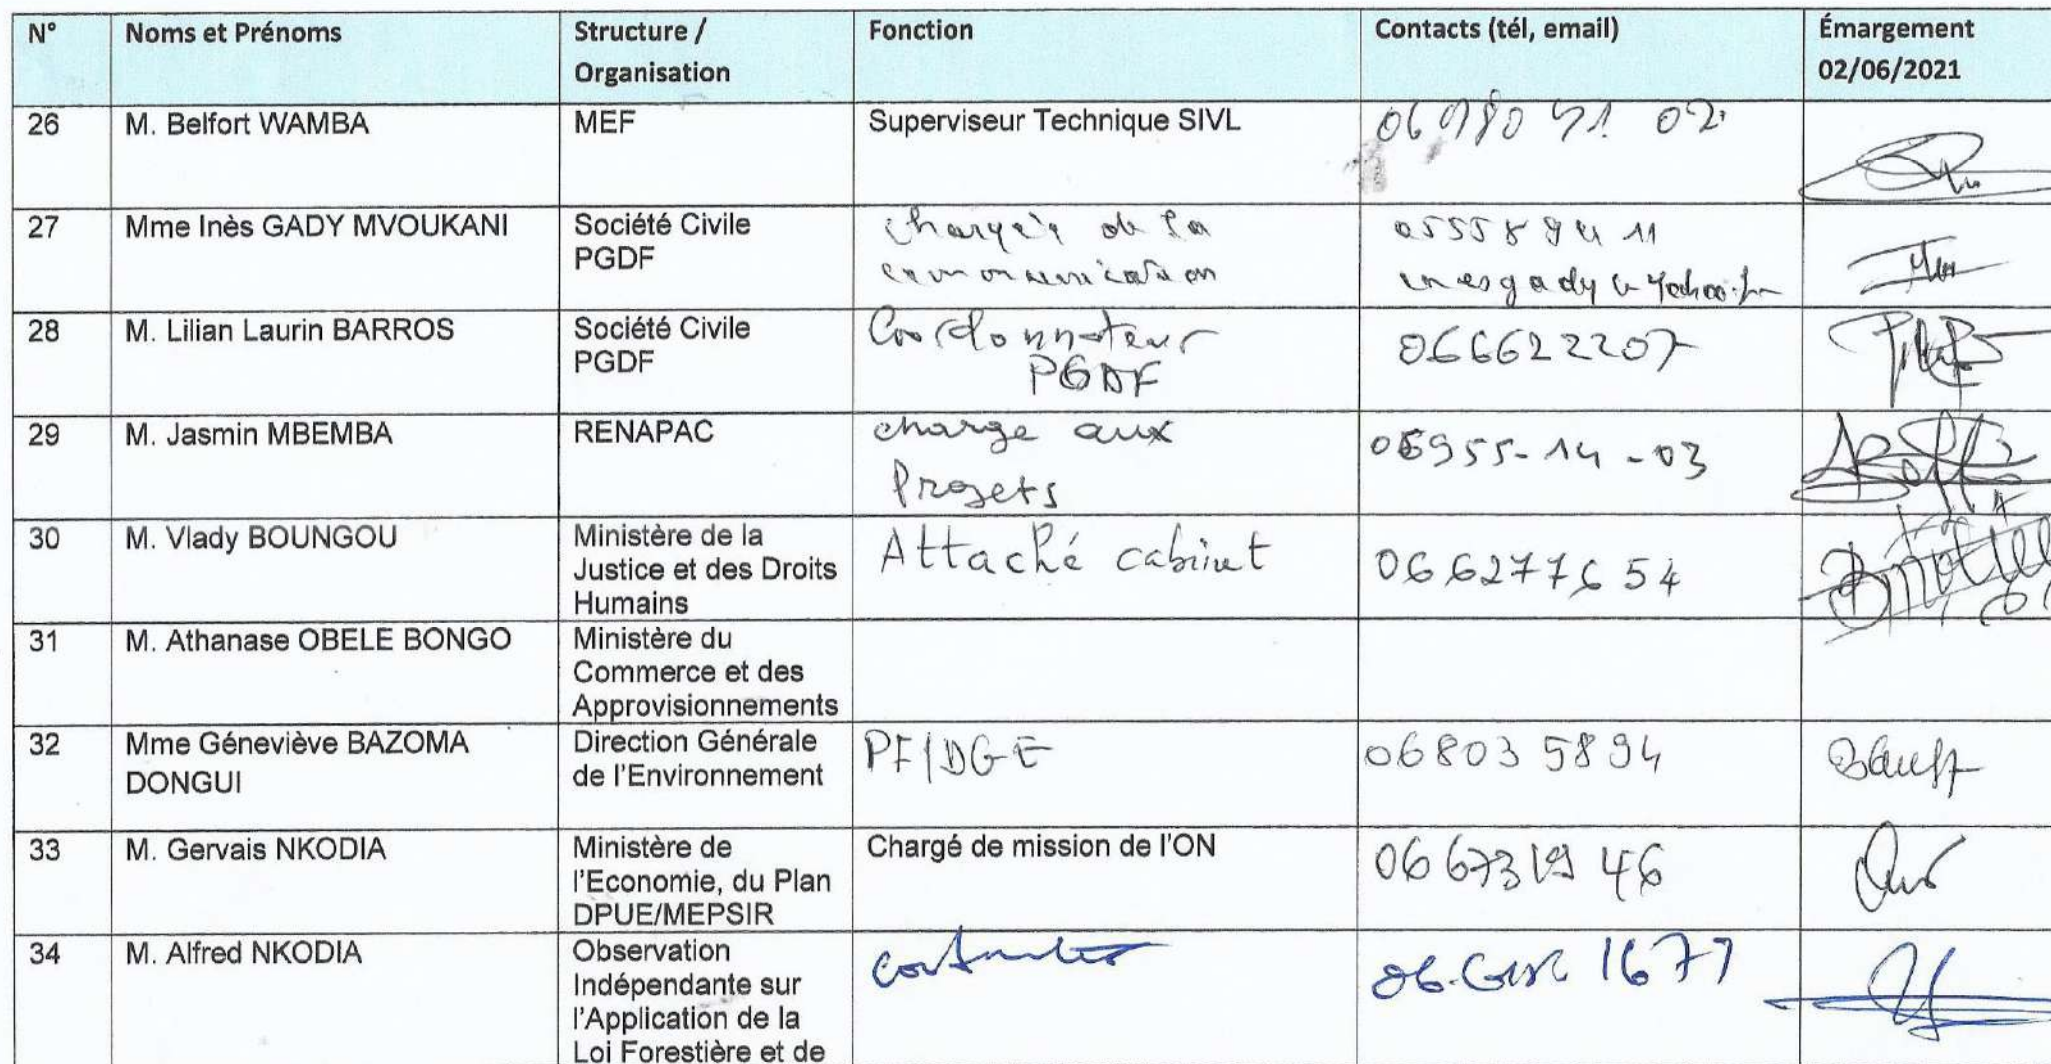 N° Noms et Prénoms Structure / Organisation Fonction Contacts (tél, email) Émargement 02/06/2021
26 M. Belfort WAMBA MEF Superviseur Technique SIVL 02
27 Mme Inès GADY MVOUKANI Société Civile PGDF chargée de la communication 11
28 M. Lilian Laurin BARROS Société Civile PGDF Coordonnateur PGDF 066622207
29 M. Jasmin MBEMBA RENAPAC charge aux Projets 06955-14-03
30 M. Vlady BOUNGOU Ministère de la Justice et des Droits Humains Attaché cabinet 066277654
31 M. Athanase OBELE BONGO Ministère du Commerce et des Approvisionnements
32 Mme Géneviève BAZOMA DONGUI Direction Générale de l'Environnement PF/DGE 06803 5894
33 M. Gervais NKODIA Ministère de l'Economie, du Plan DPUE/MEPSIR Chargé de mission de l'ON 06 67319 46
34 M. Alfred NKODIA Observation Indépendante sur l'Application de la Loi Forestière et de 1677